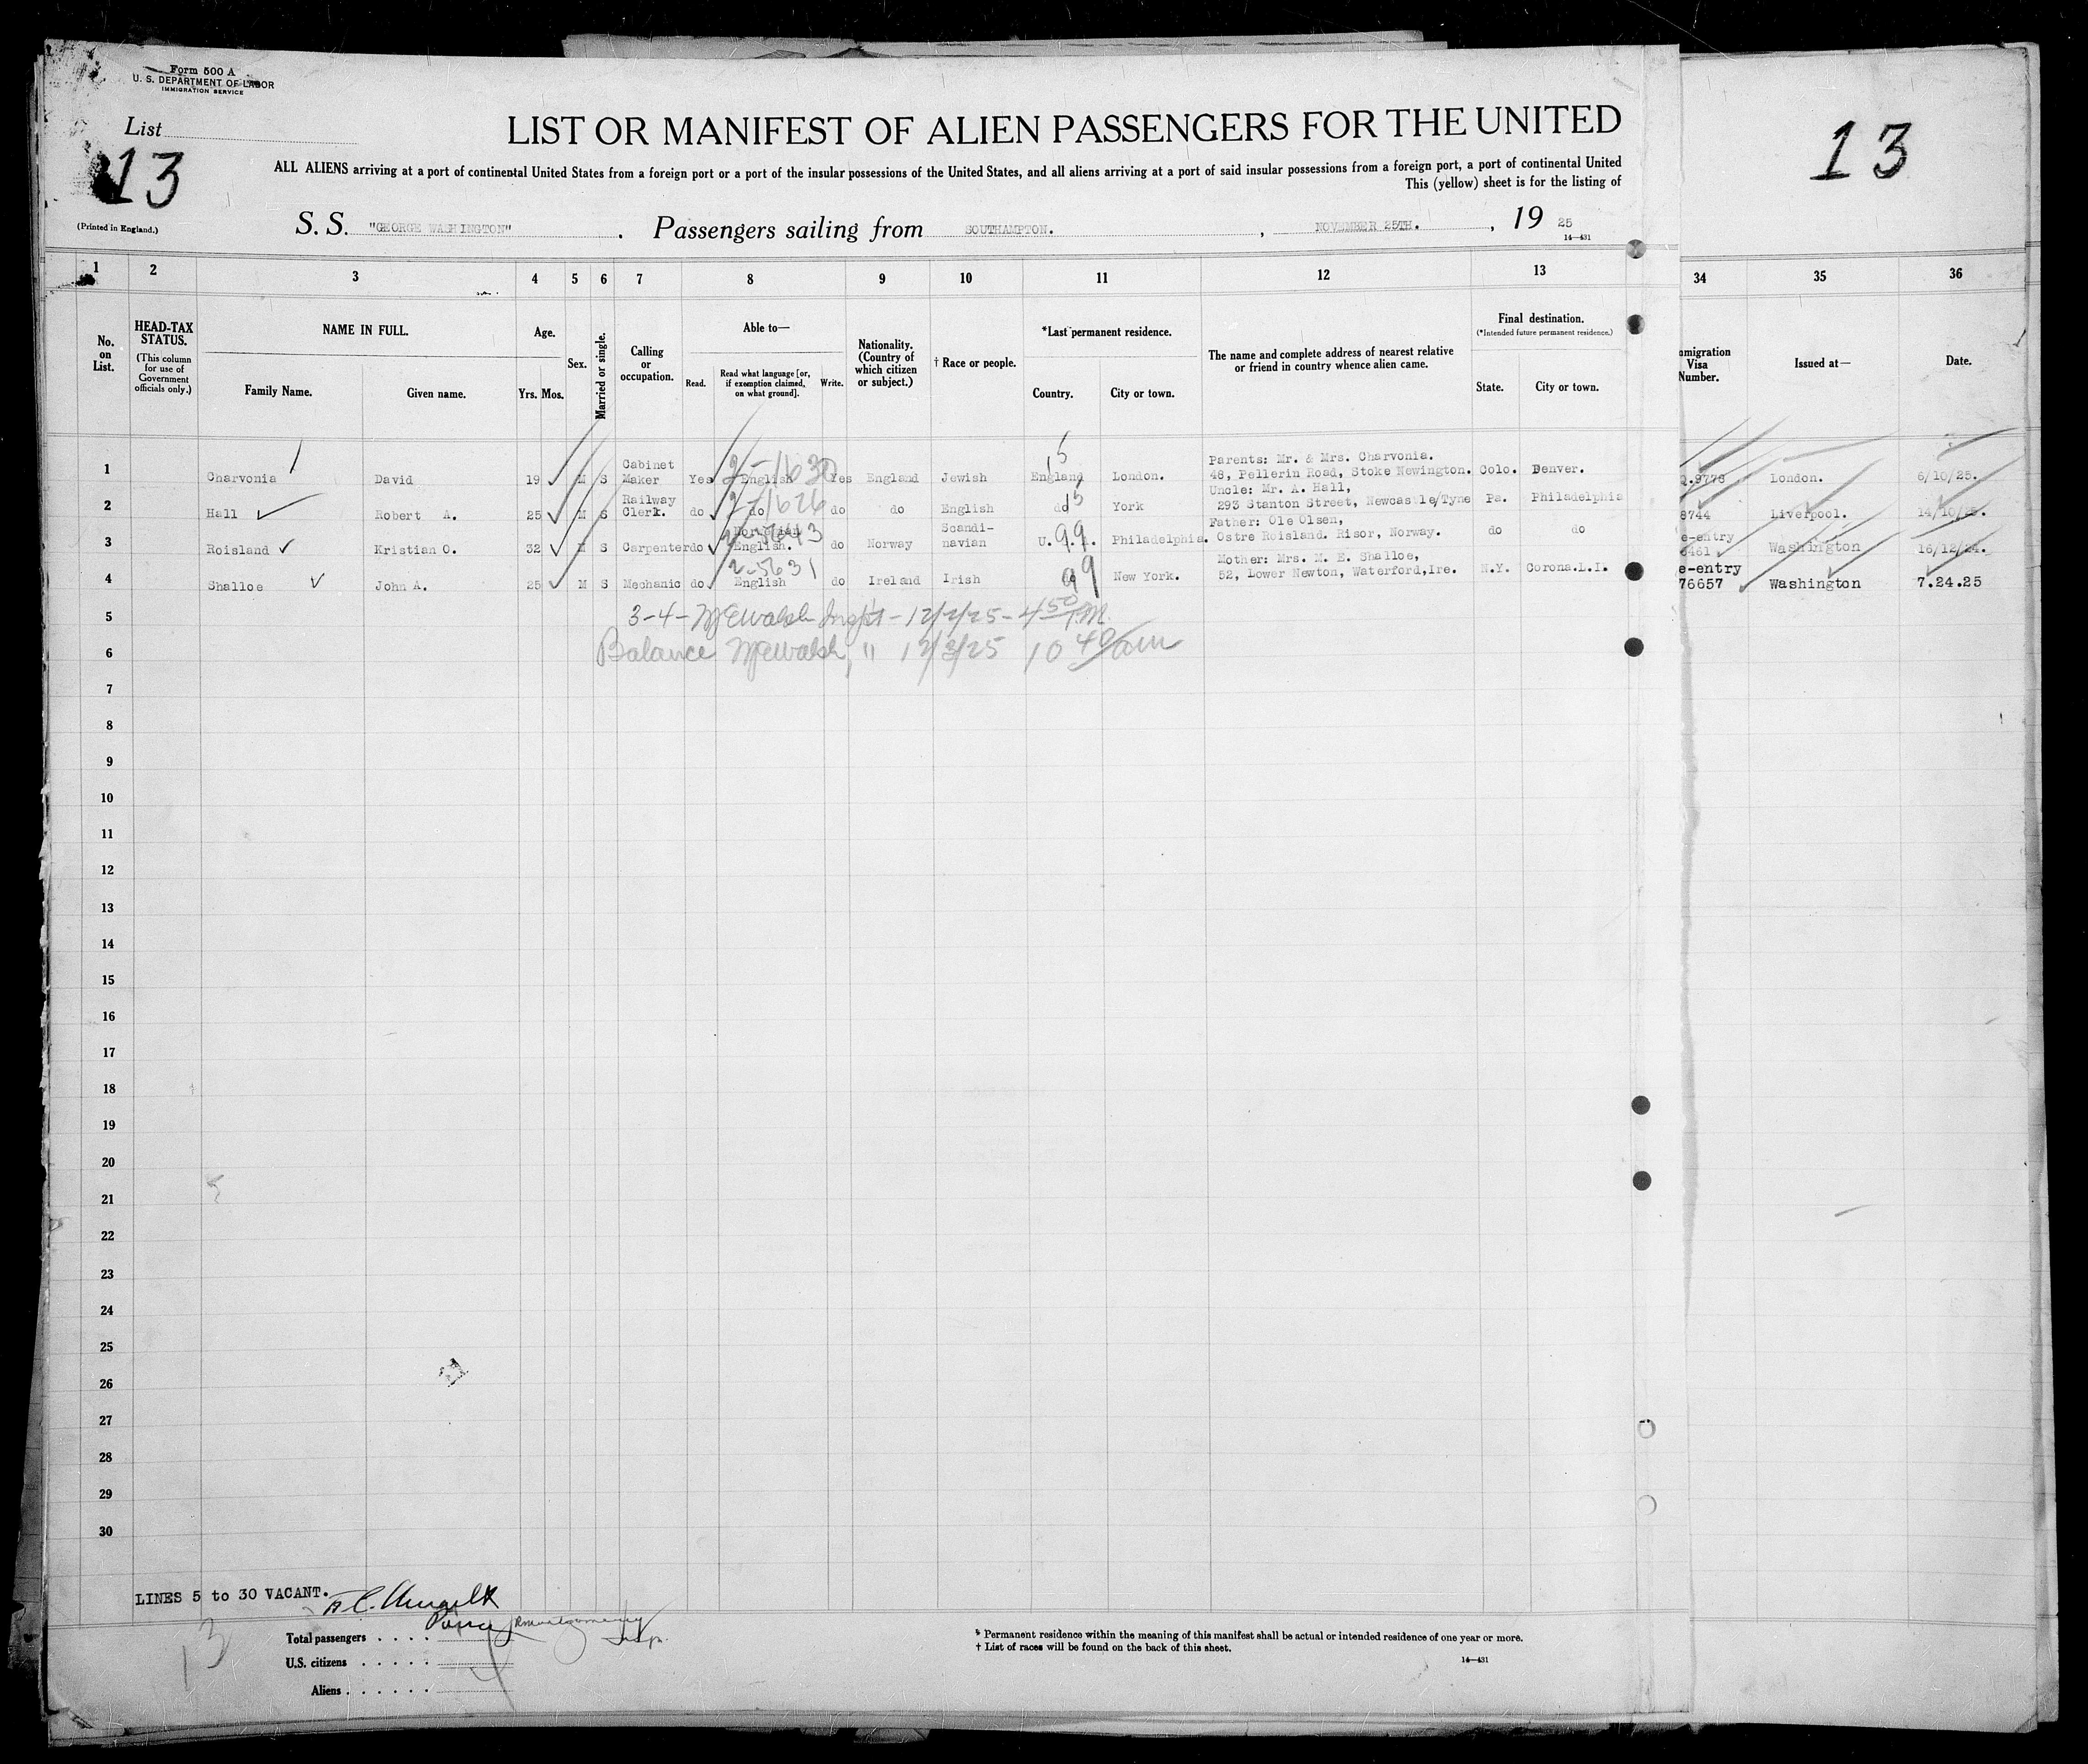 Form 500 A
U. S. DEPARTMENT OF LABOR
IMMIGRATION SERVICE
List
13
LIST OR MANIFEST OF ALIEN PASSENGERS FOR THE UNITED
13
ALL ALIENS arriving at a port of continental United States from a foreign port or a port of the insular possessions of the United States, and all aliens arriving at a port of said insular possessions from a foreign port, a port of continental United
This (yellow) sheet is for the listing of
(Printed in England.)
S. S. "GEORGE WASHINGTON" . Passengers sailing from SOUTHAMPTON. , NOVEMBER 25TH. , 19 25
14—431
1 2 3 4 5 6 7 8 9 10 11 12 13 34 35 36
No. on List.
HEAD-TAX STATUS.
(This column for use of Government officials only.)
NAME IN FULL.
Family Name. Given name.
Age.
Yrs. Mos.
Sex.
Married or single.
Calling or occupation.
Able to—
Read. Read what language [or, if exemption claimed, on what ground]. Write.
Nationality. (Country of which citizen or subject.)
† Race or people.
*Last permanent residence.
Country. City or town.
The name and complete address of nearest relative or friend in country whence alien came.
Final destination.
(*Intended future permanent residence.)
State. City or town.
mmigration Visa Number.
Issued at—
Date.
1 Charvonia David 19 M S Cabinet Maker Yes English 2-1630 Yes England Jewish England 15 London. Parents: Mr. & Mrs. Charvonia. 48, Pellerin Road, Stoke Newington. Colo. Denver. 9776 London. 6/10/25.
2 Hall Robert A. 25 M S Railway Clerk. do do 2-1626 do do English do 15 York Uncle: Mr. A. Hall, 293 Stanton Street, Newcastle/Tyne Pa. Philadelphia 8744 Liverpool. 14/10/25.
3 Roisland Kristian O. 32 M S Carpenter do Norwegian English. do Norway Scandinavian U. 99 Philadelphia. Father: Ole Olsen, Ostre Roisland. Risor, Norway. do do e-entry 6461 Washington 16/12/24.
4 Shalloe John A. 25 M S Mechanic do English 2-5631 do Ireland Irish 99 New York. Mother: Mrs. M. E. Shalloe, 52, Lower Newton, Waterford,Ire. N.Y. Corona.L.I. e-entry 76657 Washington 7.24.25
5 3-4- McEwalsh Inspt - 12/2/25 - 4 50 P.M.
6 Balance McEwalsh, " 12/3/25 10 40/am
7
8
9
10
11
12
13
14
15
16
17
18
19
20
21
22
23
24
25
26
27
28
29
30
LINES 5 to 30 VACANT.
13
Total passengers . . . .
U.S. citizens . . . . .
Aliens . . . . . .
* Permanent residence within the meaning of this manifest shall be actual or intended residence of one year or more.
† List of races will be found on the back of this sheet.
14—431